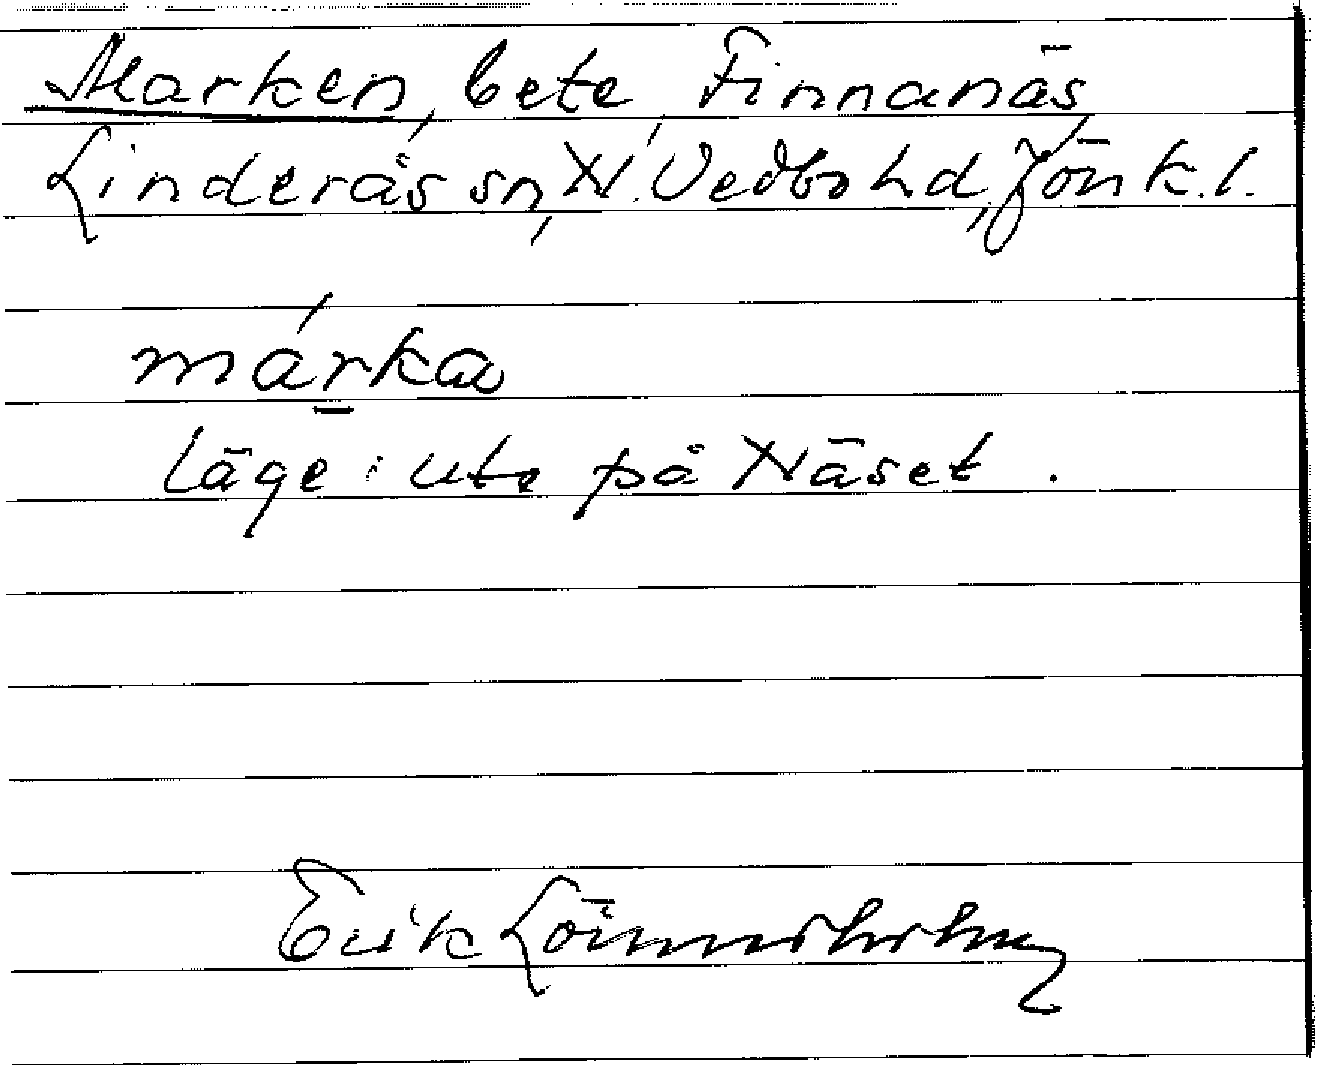 Marken, bete, Finnanäs,
Linderås sn, N. Vedbo hd, Jönk. l.
márka
läge: ute på Näset.
Erik Lönnerholm